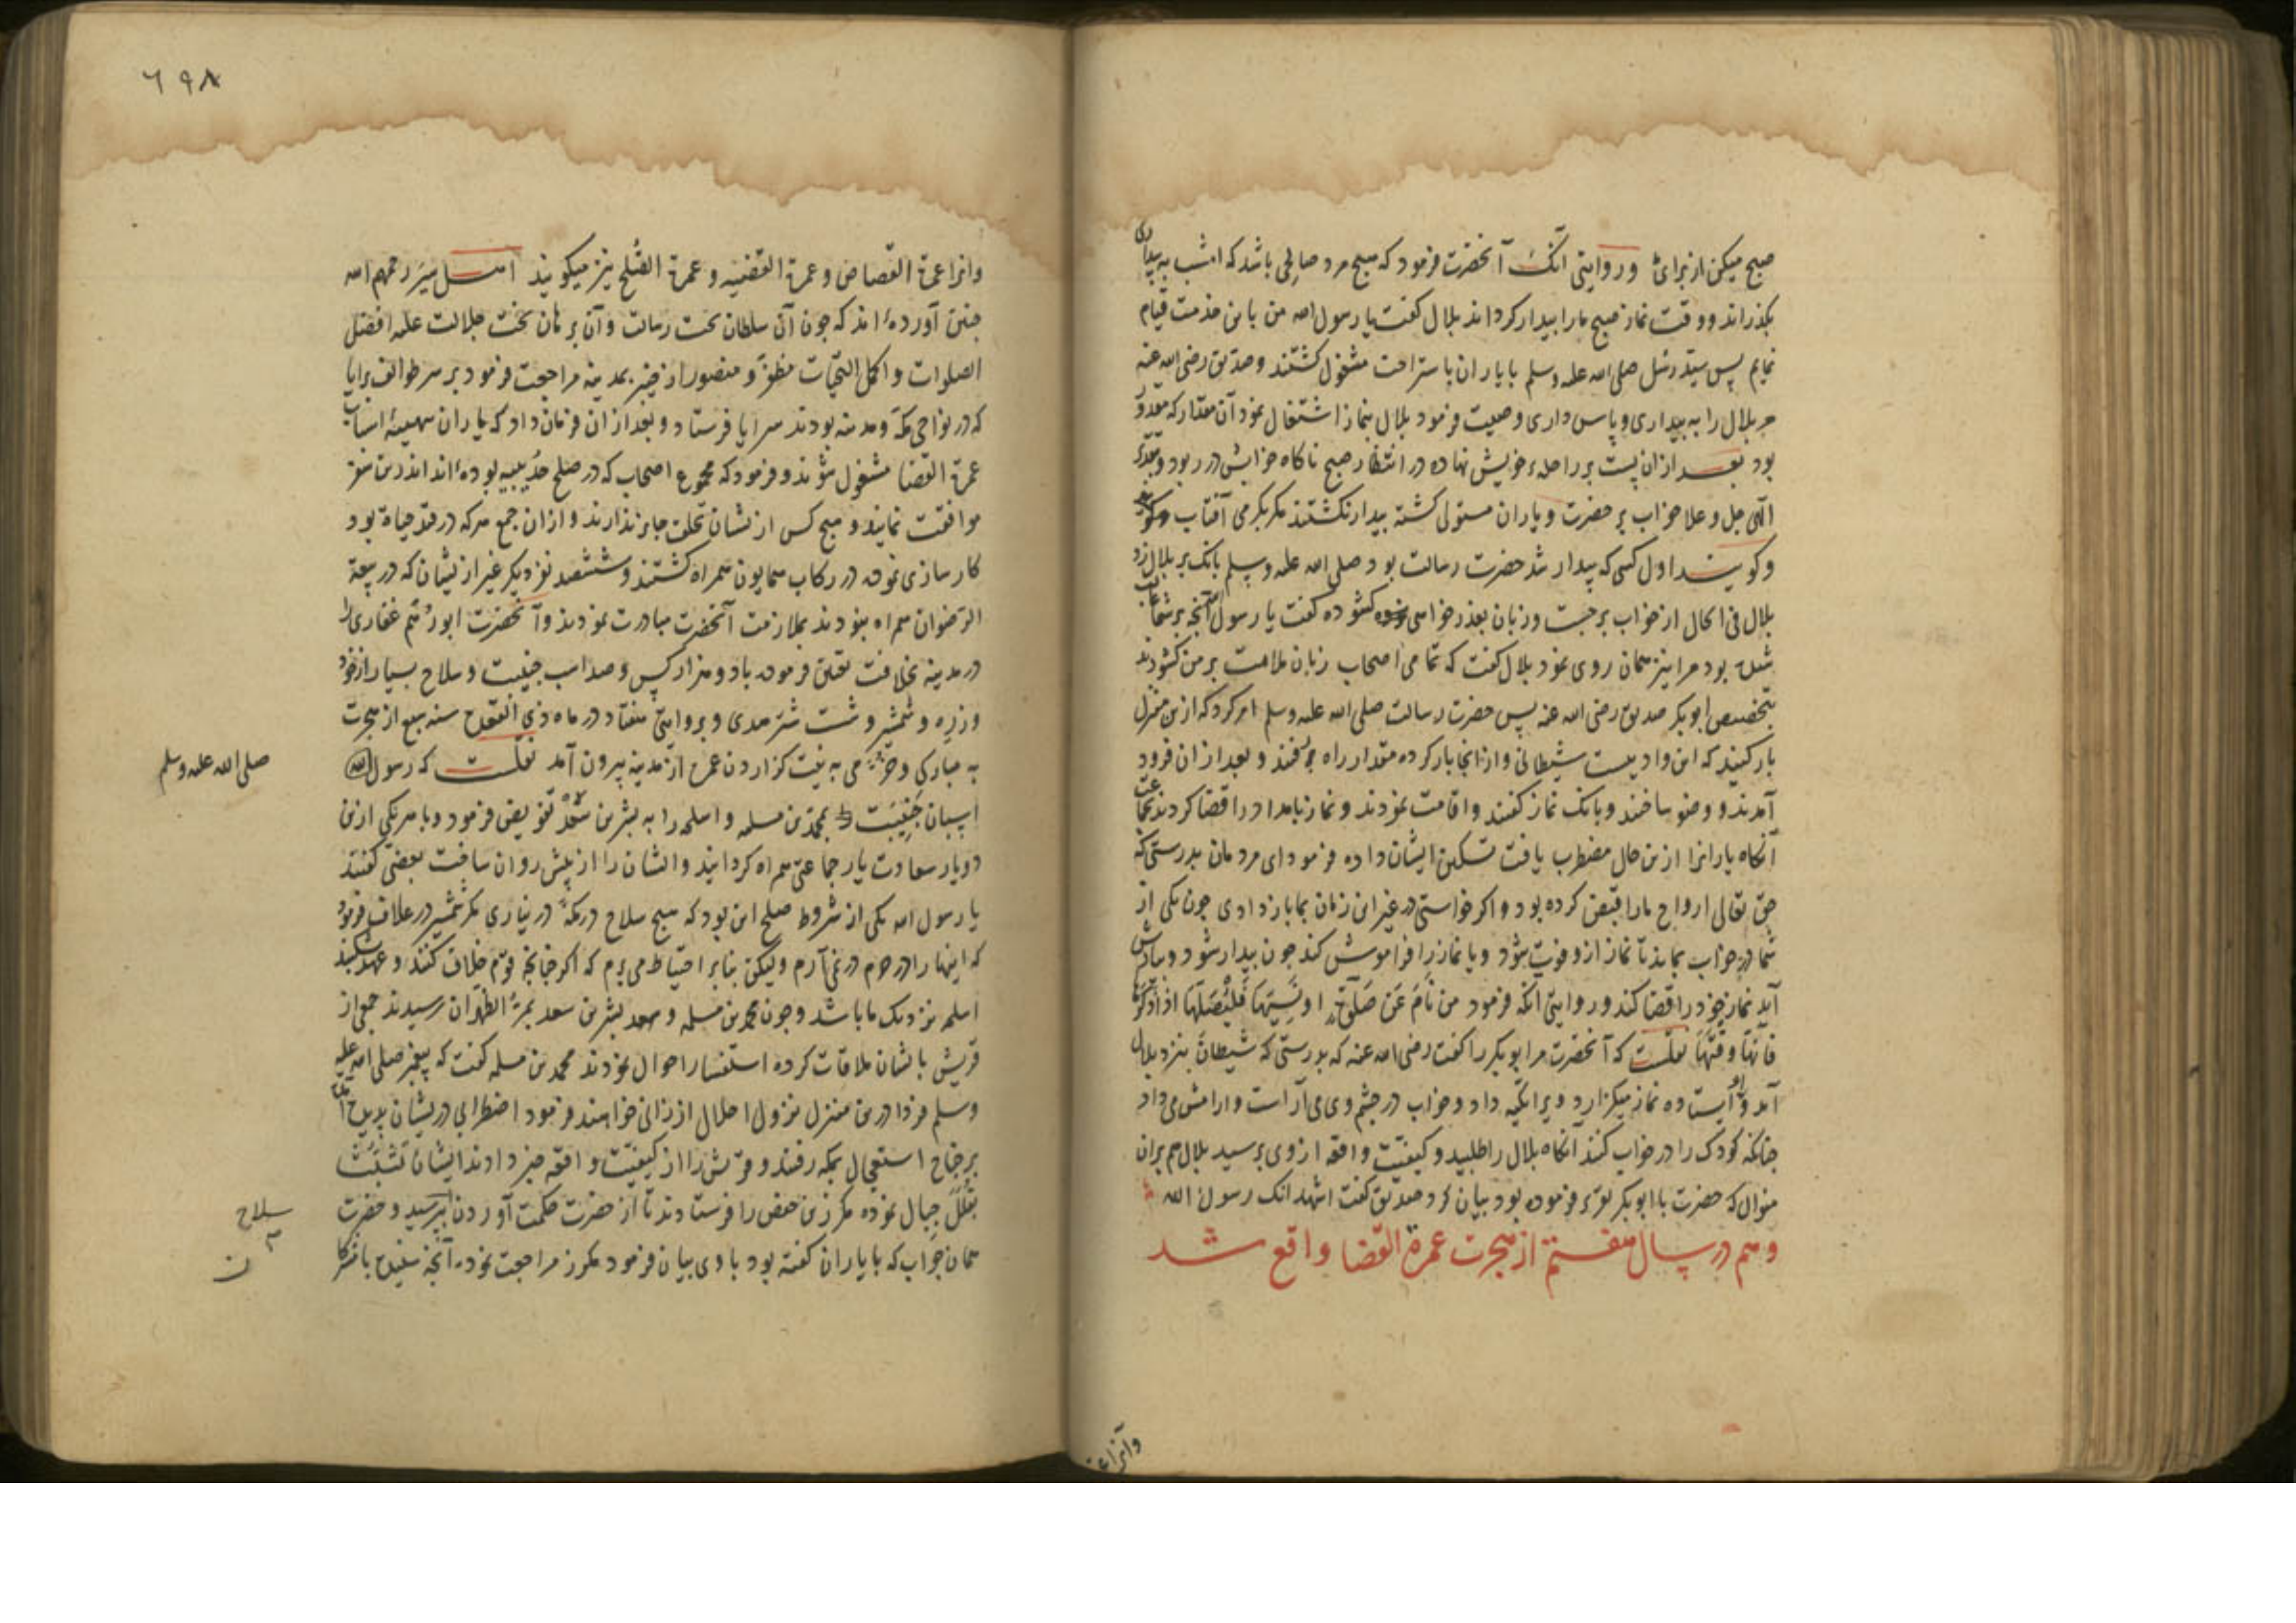 صبح میکن از برای ما و روایتی آنک آنحضرت فرمود که هیچ مرد صالحی باشد که امشب به بیداری
بکذراند و وقت نماز صبح ما را بیدار کرداند بلال کفت یا رسول الله من باین خدمت قیام
نمایم پس سید رسل صلی الله علیه وسلم با یاران باستراحت مشغول کشتند و صدیق رضی الله عنه
مر بلال را به بیداری و پاس داری وصیت فرمود بلال بنماز اشتغال نمود آن مقدار که مقدور
بود بعد از ان پشت بر راحلهٔ خویش نهاده در انتظار صبح ناکاه خوابش در ربود و بتقدیر
الهی جل و علا خواب بر حضرت و یاران مستولی کشته بیدار نکشتند مکر بکرمی آفتاب
و کویند اول کسی که بیدار شد حضرت رسالت بود صلی الله علیه وسلم بانک بر بلال زد
بلال فی الحال از خواب برجست و زبان بعذر خواهی کشوده کفت یا رسول الله آنچه بر شما غالب
شده بود مرا نیز همان روی نمود بلال کفت که تمامی اصحاب زبان ملامت بر من کشودند
بتخصیص ابوبکر صدیق رضی الله عنه پس حضرت رسالت صلی الله علیه وسلم امر کرد که ازین منزل
بار کنید که این وادیست شیطانی و از انجا بار کرده مقدار راه برفتند و بعد از ان فرود
آمدند و وضو ساختند و بانک نماز کفتند و اقامت نمودند و نماز بامداد را قضا کردند بجماعت
آنکاه یارانرا ازین حال مضطرب یافت تسکین ایشان داده فرمود ای مردمان بدرستی که
حق تعالی ارواح ما را قبض کرده بود و اکر خواستی در غیر این زمان بما باز دادی چون یکی از
شما در خواب بماند تا نماز ازو فوت شود و یا نماز را فراموش کند چون بیدار شود و بیادش
آید نماز خود را قضا کند و روایتی آنکه فرمود من نام عن صلوة او نسیها فلیصلها اذا ذکرها
فانها وقتها نقلست که آنحضرت مر ابوبکر را کفت رضی الله عنه که بدرستی که شیطان بنزد بلال
آمد و او ایستاده نماز میکزارد ویرا تکیه داد و خواب در چشم وی می آراست و ارامش می داد
چنانکه کودک را در خواب کنند آنکاه بلال را طلبید و کیفیت واقعه از وی پرسید بلال هم بران
منوال که حضرت با ابوبکر فرموده بود بیان کرد صدیق کفت اشهد انک رسول الله
و هم در سال هفتم از هجرت عمرة القضا واقع شد
وانراعمـ
٦٩٨
وانرا عمرة القصاص و عمرة القضیه و عمرة الصلح نیز میکویند اهل سیر رحمهم الله
چنین آورده اند که چون آن سلطان تخت رسالت و آن برهان بخت جلالت علیه افضل
الصلوات و اکمل التحیات مظفر و منصور از خیبر بمدینه مراجعت فرمود بر سر طوائف برایا
که در نواحی مکه و مدینه بودند سرایا فرستاد و بعد از ان فرمان داد که یاران بتهیئهٔ اسباب
عمرة القضا مشغول شوند و فرمود که مجموع اصحاب که در صلح حدیبیه بوده اند اندرین سفر
موافقت نمایند و هیچ کس از یشان تخلف جایز ندارند و از ان جمع هر که در قید حیاة بود
کارسازی نموده در رکاب همایون همراه کشتند و ششصد نفر دیکر غیر از یشان که در بیعة
الرضوان همراه نبودند بملازمت آنحضرت مبادرت نمودند و آنحضرت ابو رهم غفاری را
در مدینه بخلافت تعیین فرموده با دو هزار کس و صد اسب جنیبت و سلاح بسیار از خود
و زره و شمشیر و شصت شتر هدی و بروایتی هفتاد در ماه ذی القعده سنه سبع از هجرت
به مبارکی و خرمی به نیت کزاردن عمره از مدینه بیرون آمد نقلست که رسول الله
صلی الله علیه وسلم
اسبان جنیبت را بمحمد بن مسلمه و اسلحه را به بشر بن سعد تفویض فرمود و با هر یکی ازین
دو یار سعادت یار جماعتی همراه کردانید و ایشان را از پیش روان ساخت بعضی کفتند
یا رسول الله یکی از شروط صلح این بود که هیچ سلاح در مکه در نیاری مکر شمشیر در غلاف فرمود
که اینها را در حرم در نمی آرم ولیکن بنابر احتیاط می برم که اکر چنانچه قوم خلاف کنند و عهد بشکنند
اسلحه نزدیک ما باشد و چون محمد بن مسلمه و بشر بن سعد بمر الظهران رسیدند جمعی از
قریش با یشان ملاقات کرده استفسار احوال نمودند محمد بن مسلمه کفت که پیغمبر صلی الله علیه
وسلم فردا درین منزل نزول اجلال ارزانی خواهند فرمود اضطرابی در یشان پدید آمد
بر جناح استعجال بمکه رفتند و قریش را از کیفیت واقعه خبر دادند ایشان تشبث
بقلل جبال نموده مکرز بن حفص را فرستادند تا از حضرت حکمت آوردن بپرسید و حضرت
سلاح
همان جواب که با یاران کفته بود با وی بیان فرمود مکرز مراجعت نموده آنچه شنیده با شرکا